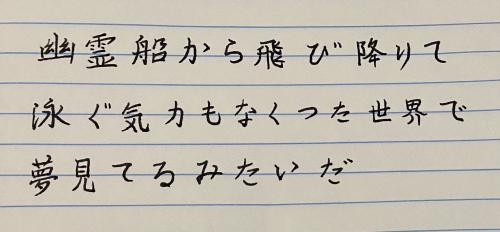 幽霊船から飛び降りて
泳ぐ気力もなくつた世界で
夢見てるみたいだ